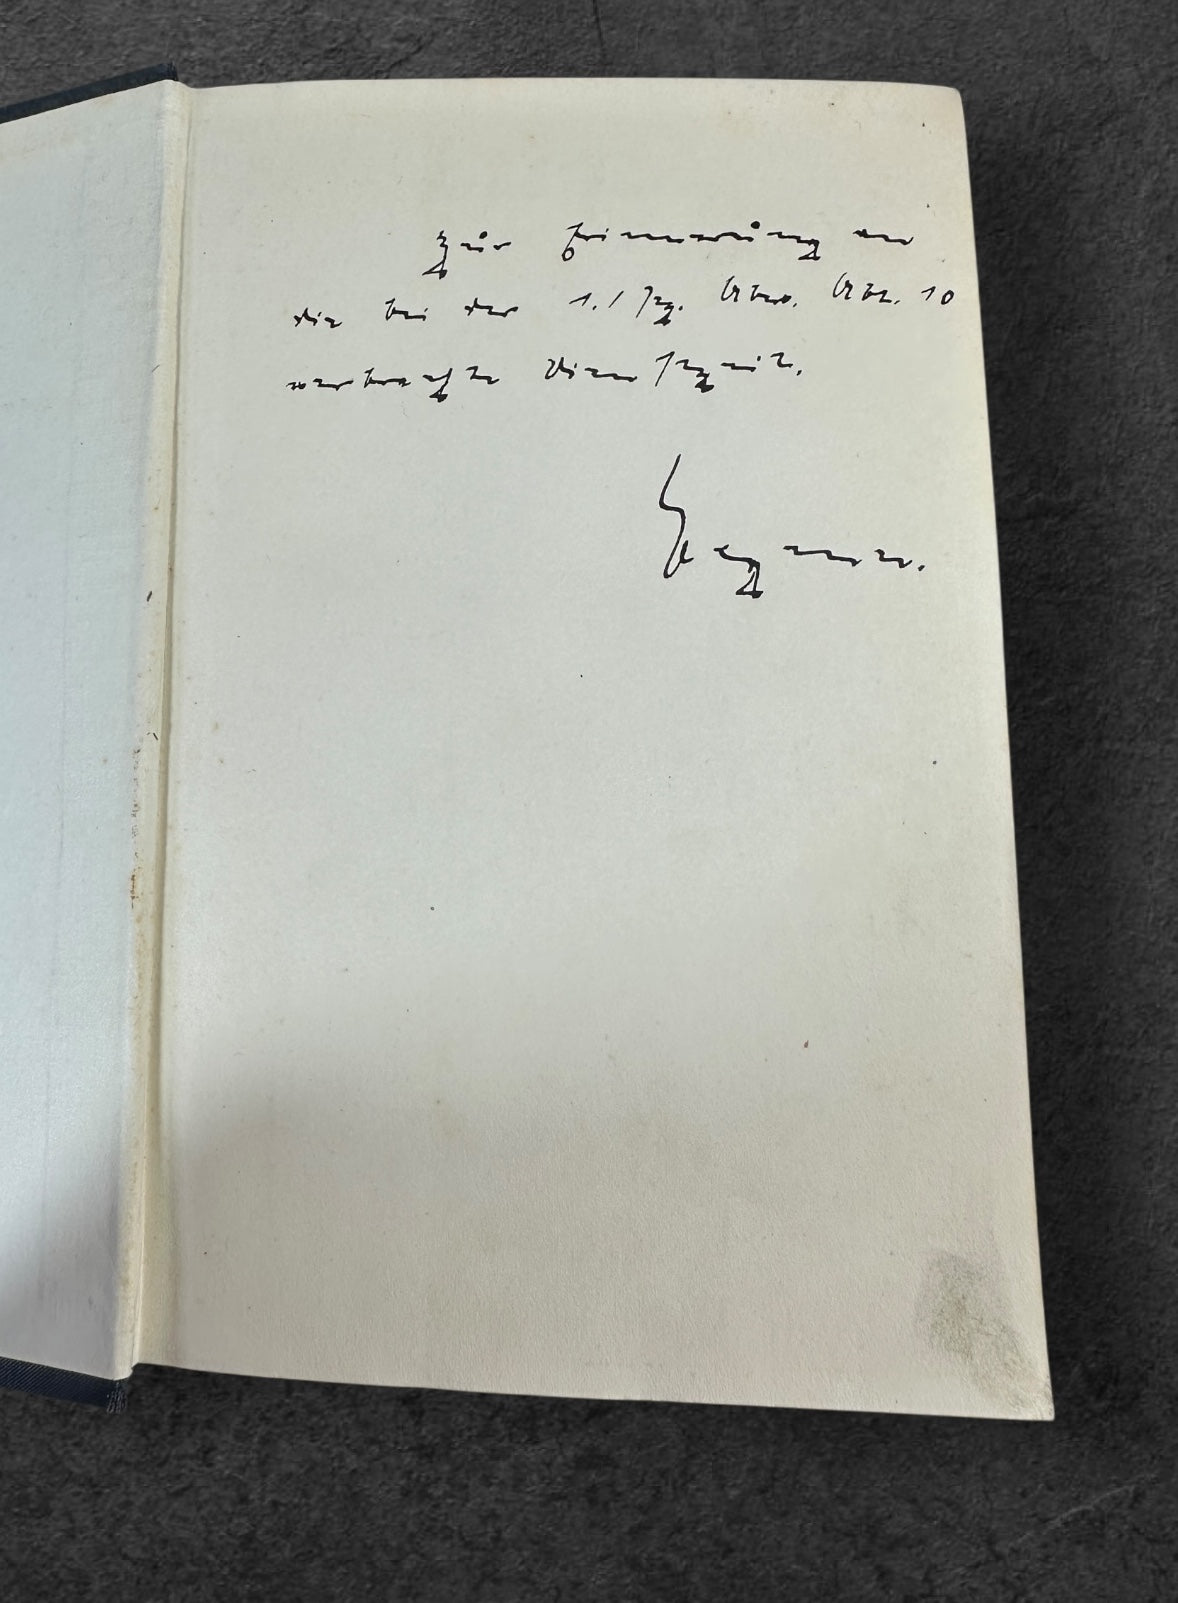 Zur Erinnerung an
die bei der 1. / Pz. Abw. Abt. 10
verbrachte Dienstzeit.